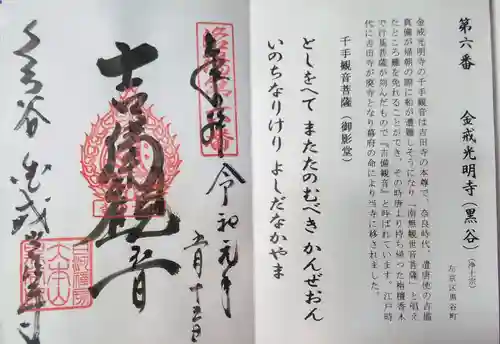 第六番 金戒光明寺（黒谷）（浄土宗）
左京区黒谷町
金戒光明寺の千手観音は吉田寺の本尊で、奈良時代、遣唐使の吉備
真備が帰朝の際に船が遭難しそうになり「南無観世音菩薩」と唱え
たところ難を免れることができ、その時唐より持ち帰った栴檀香木
で行基菩薩が刻んだもので『吉備観音』と呼ばれています。江戸時
代に吉田寺が廃寺となり幕府の命により当寺に移されました。
千手観音菩薩（御影堂）
としをへて またたのむべき かんぜおん
いのちなりけり よしだなかやま
奉拝 令和元年
五月十五日
吉備観音
くろ谷 金戒光明寺
大本山